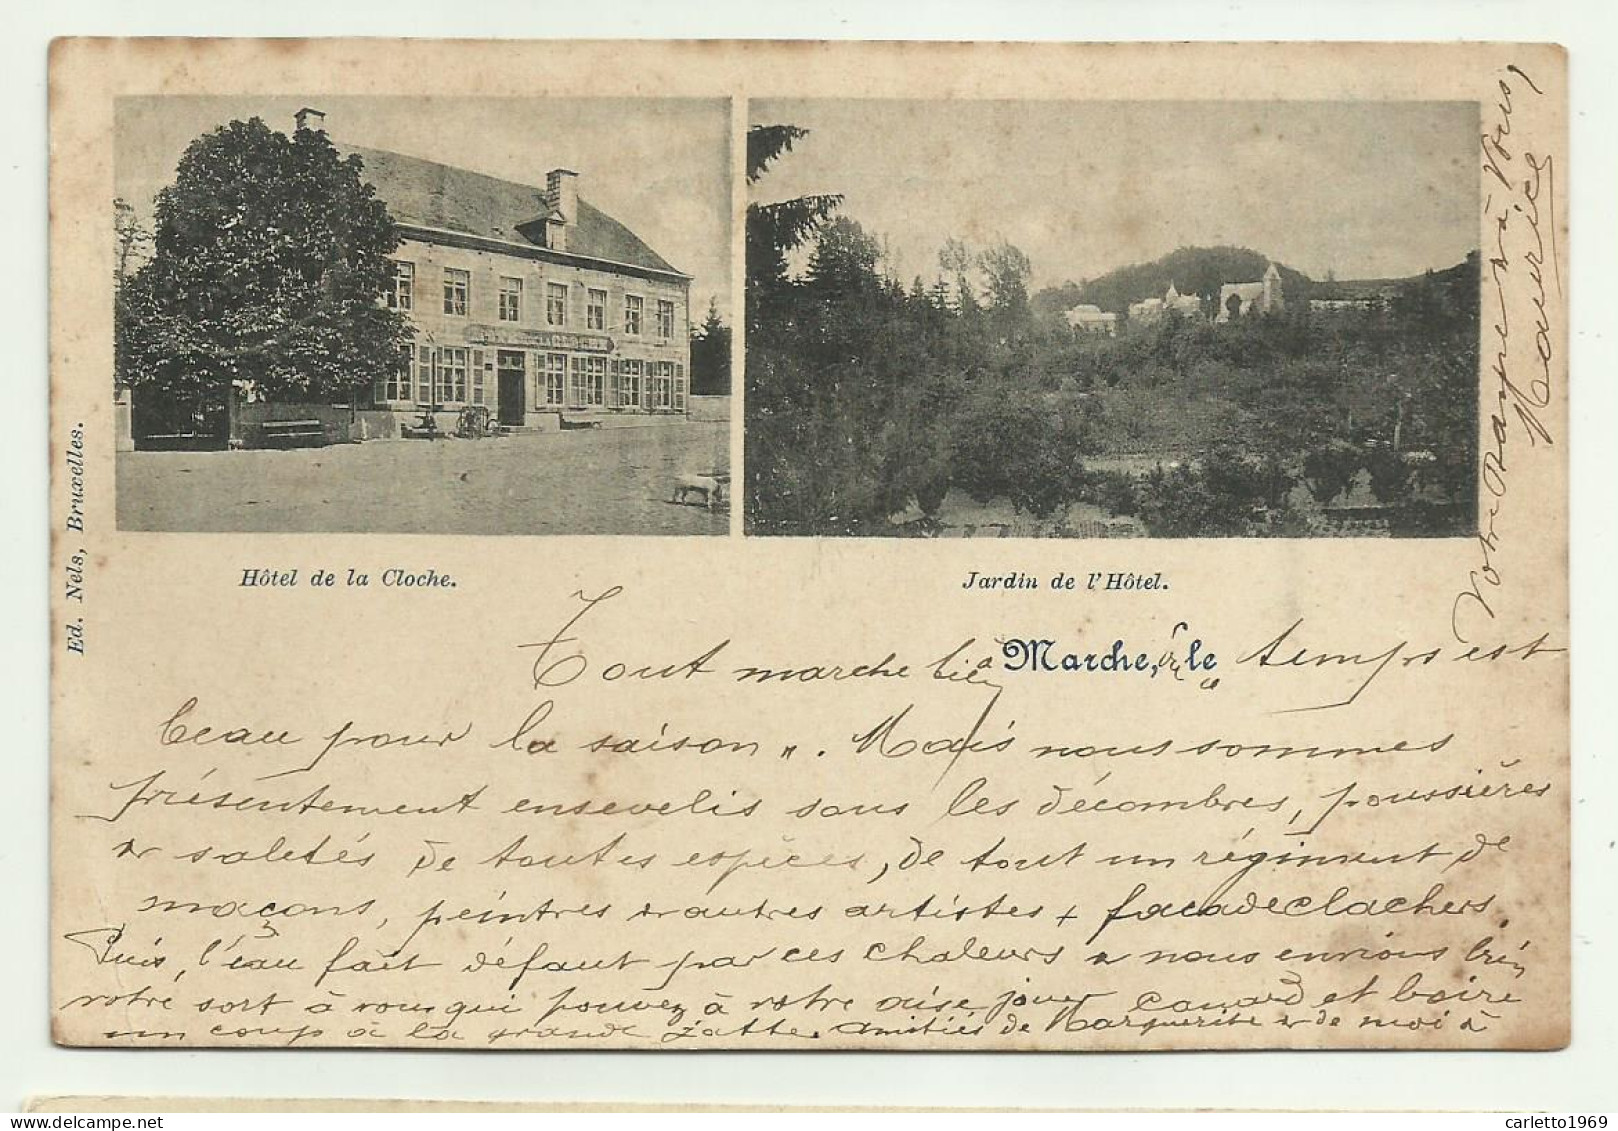 Ed. Nels, Bruxelles.
Hôtel de la Cloche.
Jardin de l'Hôtel.
Marche, le
Tout marche bien à Marche, et le temps est
beau pour la saison ". Mais nous sommes
présentement ensevelis sous les décombres, poussières
et saletés de toutes espèces, de tout un régiment de
maçons, peintres et autres artistes + facadeclachers.
Puis, l'eau fait défaut par ces chaleurs et nous envions bien
votre sort à vous qui pouvez à votre aise jouer canard et boire
un coup à la grande jatte. Amitiés de Marguerite et de moi à
Votre Dame et à Vous,
Maurice
carletto1969
delcampe.net